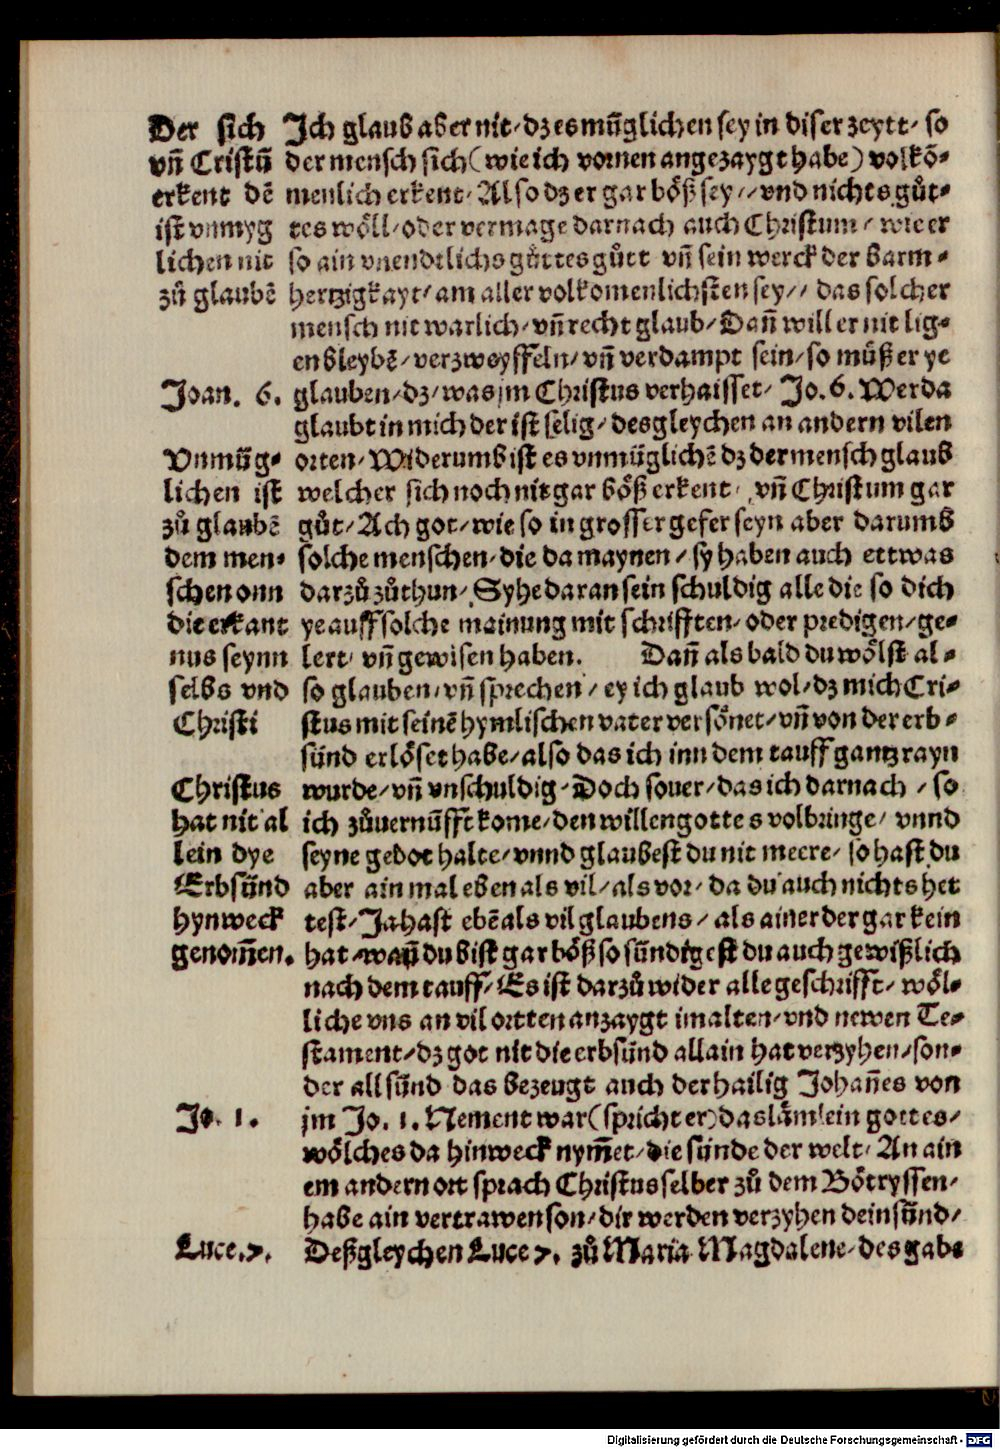 Der sich
vñ Cristũ
erkent dẽ
ist vnmyg
lichen nit
zů glaubẽ
Ich glaub aber nit/ dz es mũglichen sey in diser zeytt/ so
der mensch sich (wie ich vornen angezaygt habe) volkõ-
menlich erkent/ Also dz er gar böß sey// vnd nichts gůt-
tes wöll/ oder vermage darnach auch Christum/ wie er
so ain vnendtlichs gůttes gůtt vñ sein werck der barm-
hertzigkayt/ am aller volkomenlichsten sey// das solcher
mensch nit warlich/ vñ recht glaub/ Dañ will er nit lig-
en bleybẽ/ verzweyffeln/ vñ verdampt sein/ so můß er ye
Joan. 6.
glauben/ dz/ was jm Christus verhaisset/ Jo. 6. Wer da
glaubt in mich der ist selig/ desgleychen an andern vilen
Vnmüg-
lichen ist
zů glaubẽ
dem men-
schen onn
die erkant
nus seynn
selbs vnd
Christi
orten/ Widerumb ist es vnmüglichẽ dz der mensch glaub
welcher sich noch nit gar böß erkent/ vñ Christum gar
gůt/ Ach got/ wie so in grosser gefer seyn aber darumb
solche menschen/ die da maynen/ sy haben auch ettwas
darzů zůthun/ Syhe daran sein schuldig alle die so dich
ye auff solche mainung mit schrifften/ oder predigen/ ge-
lert/ vñ gewisen haben. Dañ als bald du wölst al-
so glauben/ vñ sprechen/ ey ich glaub wol/ dz mich Cri-
stus mit seinẽ hymlischen vater versönet/ vñ von der erb-
sünd erlöset habe/ also das ich inn dem tauff gantz rayn
Christus
hat nit al
lein dye
Erbsünd
hynweck
genom̃en.
wurde/ vñ vnschuldig/ Doch souer/ das ich darnach/ so
ich zůuernũfft kome/ den willen gottes volbringe/ vnnd
seyne gebot halte/ vnnd glaubest du nit meere/ so hast du
aber ain mal eben als vil/ als vor/ da du auch nichts het
test/ Ja hast ebẽ als vil glaubens/ als ainer der gar kein
hat/ wañ du bist gar böß so sündigest du auch gewißlich
nach dem tauff/ Es ist darzů wider alle geschrifft/ wöl-
liche vns an vil ortten anzaygt im alten/ vnd newen Te-
stament/ dz got nit die erbsünd allain hat verzyhen/ son-
der all sünd das bezeugt auch der hailig Johañes von
Jo. 1.
jm Jo. 1. Nement war (spricht er) das lämlein gottes/
wölches da hinweck nym̃et/ die sünde der welt/ An ain
em andern ort sprach Christus selber zů dem Bötryssen/
habe ain vertrawen son/ dir werden verzyhen dein sünd/
Luce. 7.
Deßgleychen Luce 7. zů Maria Magdalene/ des gabs
Digitalisierung gefördert durch die Deutsche Forschungsgemeinschaft - DFG